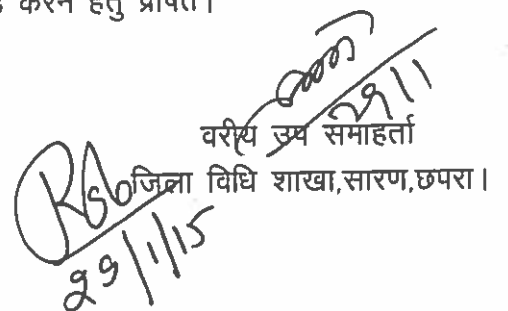 करने हेतु प्रेषित।
29/1
वरीय उप समाहर्ता
जिला विधि शाखा,सारण,छपरा।
29/1/15